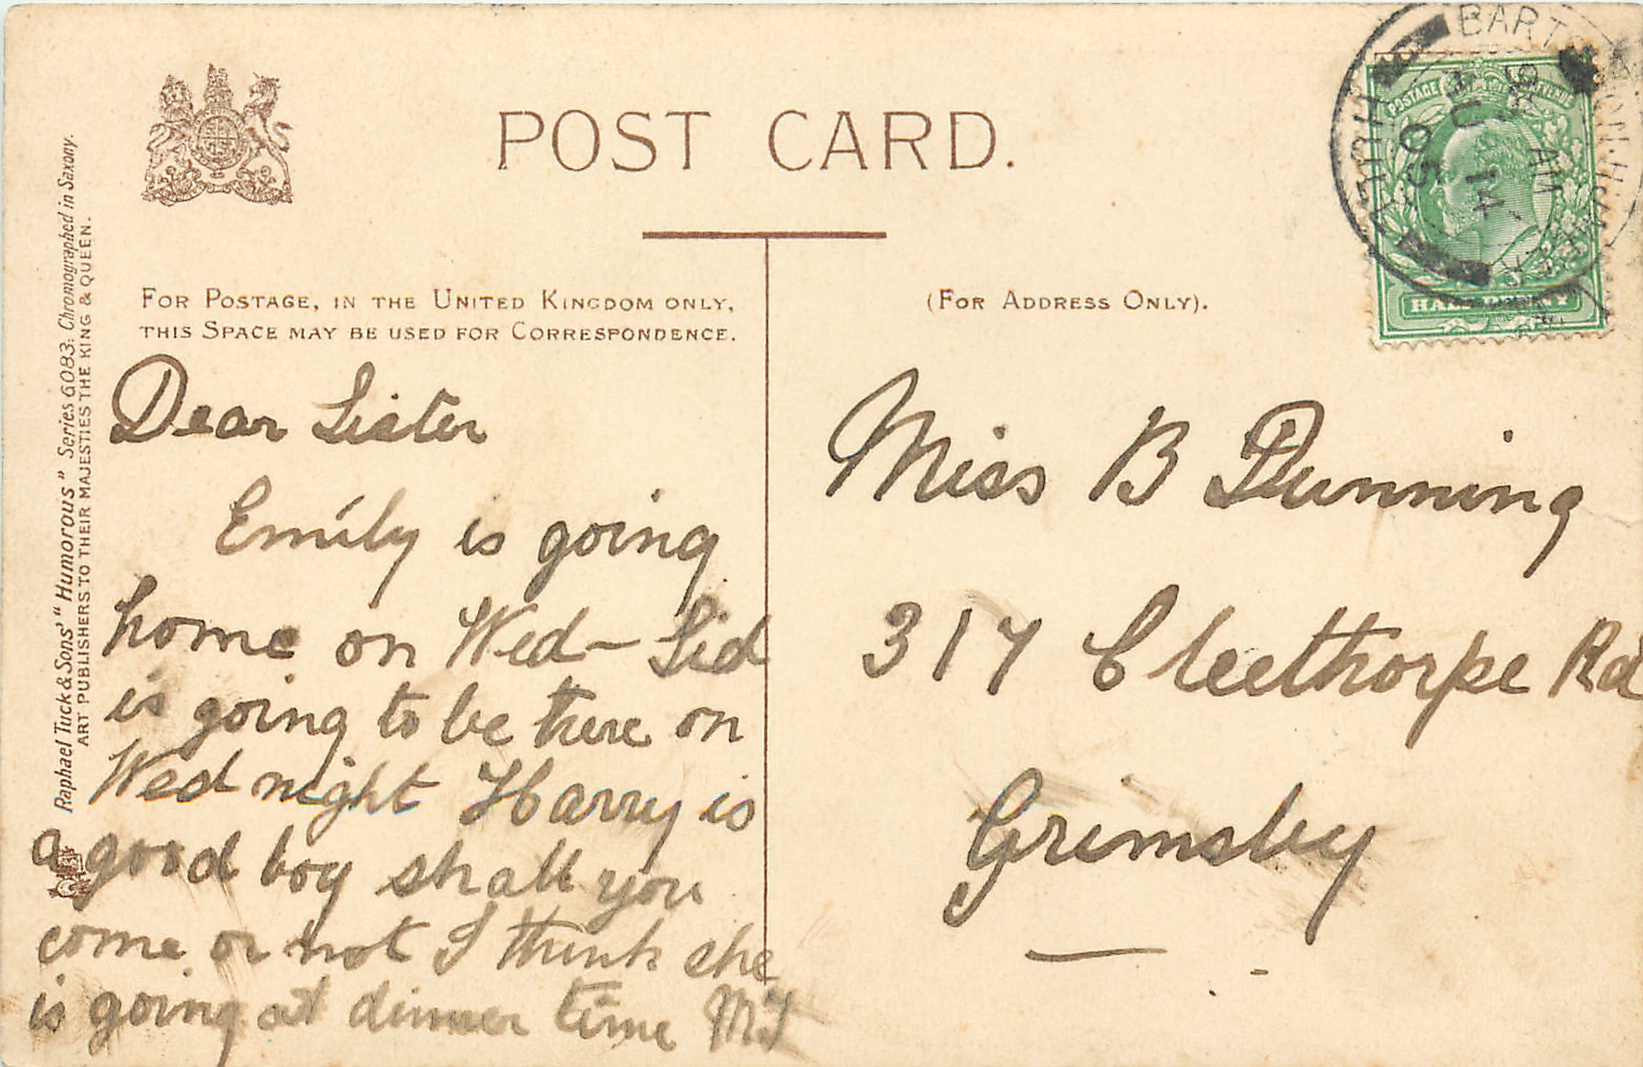 POST CARD.
FOR POSTAGE, IN THE UNITED KINGDOM ONLY,
THIS SPACE MAY BE USED FOR CORRESPONDENCE.
(FOR ADDRESS ONLY).
Raphael Tuck & Sons' "Humorous" Series 6083. Chromographed in Saxony.
ART PUBLISHERS TO THEIR MAJESTIES THE KING & QUEEN.
Dear Sister
Emily is going
home on Wed- Sid
is going to be there on
Wed night Harry is
a good boy shall you
come or not I think she
is going at dinner time
Miss B Dunning
317 Cleethorpe Rd
Grimsby
POSTAGE REVENUE
HALFPENNY
HULL
AM
JU 14
05